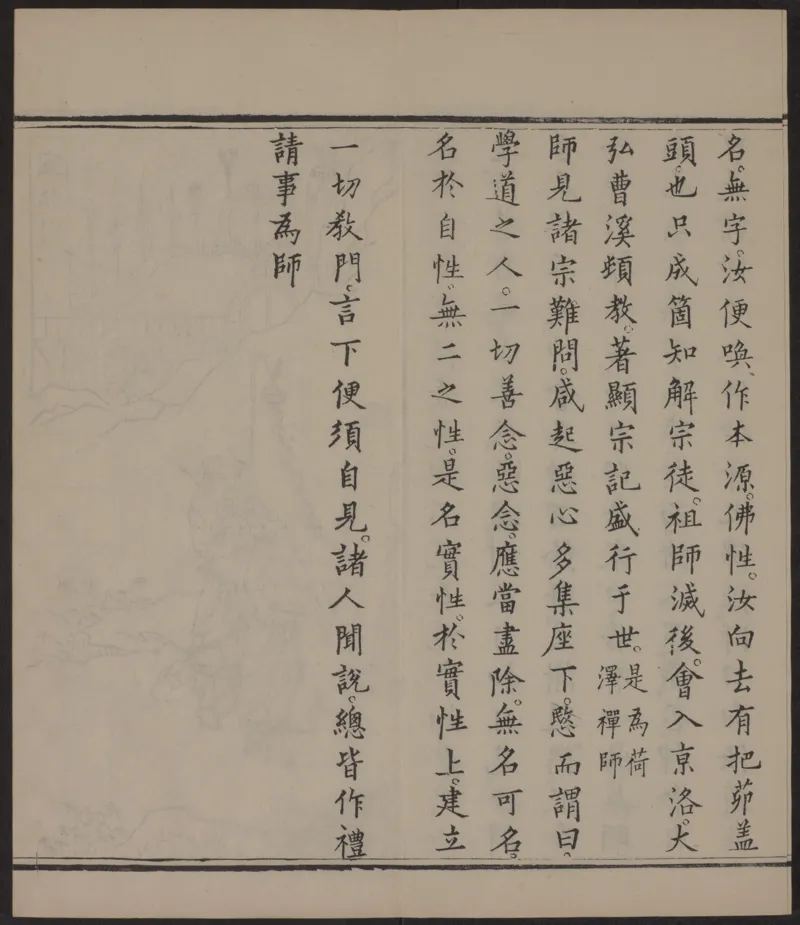 名。無字。汝便喚、作本源。佛性。汝向去有把茆盖
頭。也只成箇知解宗徒。祖師滅後。會入京洛。大
弘曹溪頓教。著顯宗記盛行于世。是為荷澤禪師
師見諸宗難問。咸起惡心多集座下。愍而謂曰。
學道之人。一切善念。惡念。應當盡除。無名可名。
名於自性。無二之性。是名實性。於實性上。建立
一切教門。言下便須自見。諸人聞說。總皆作禮
請事為師